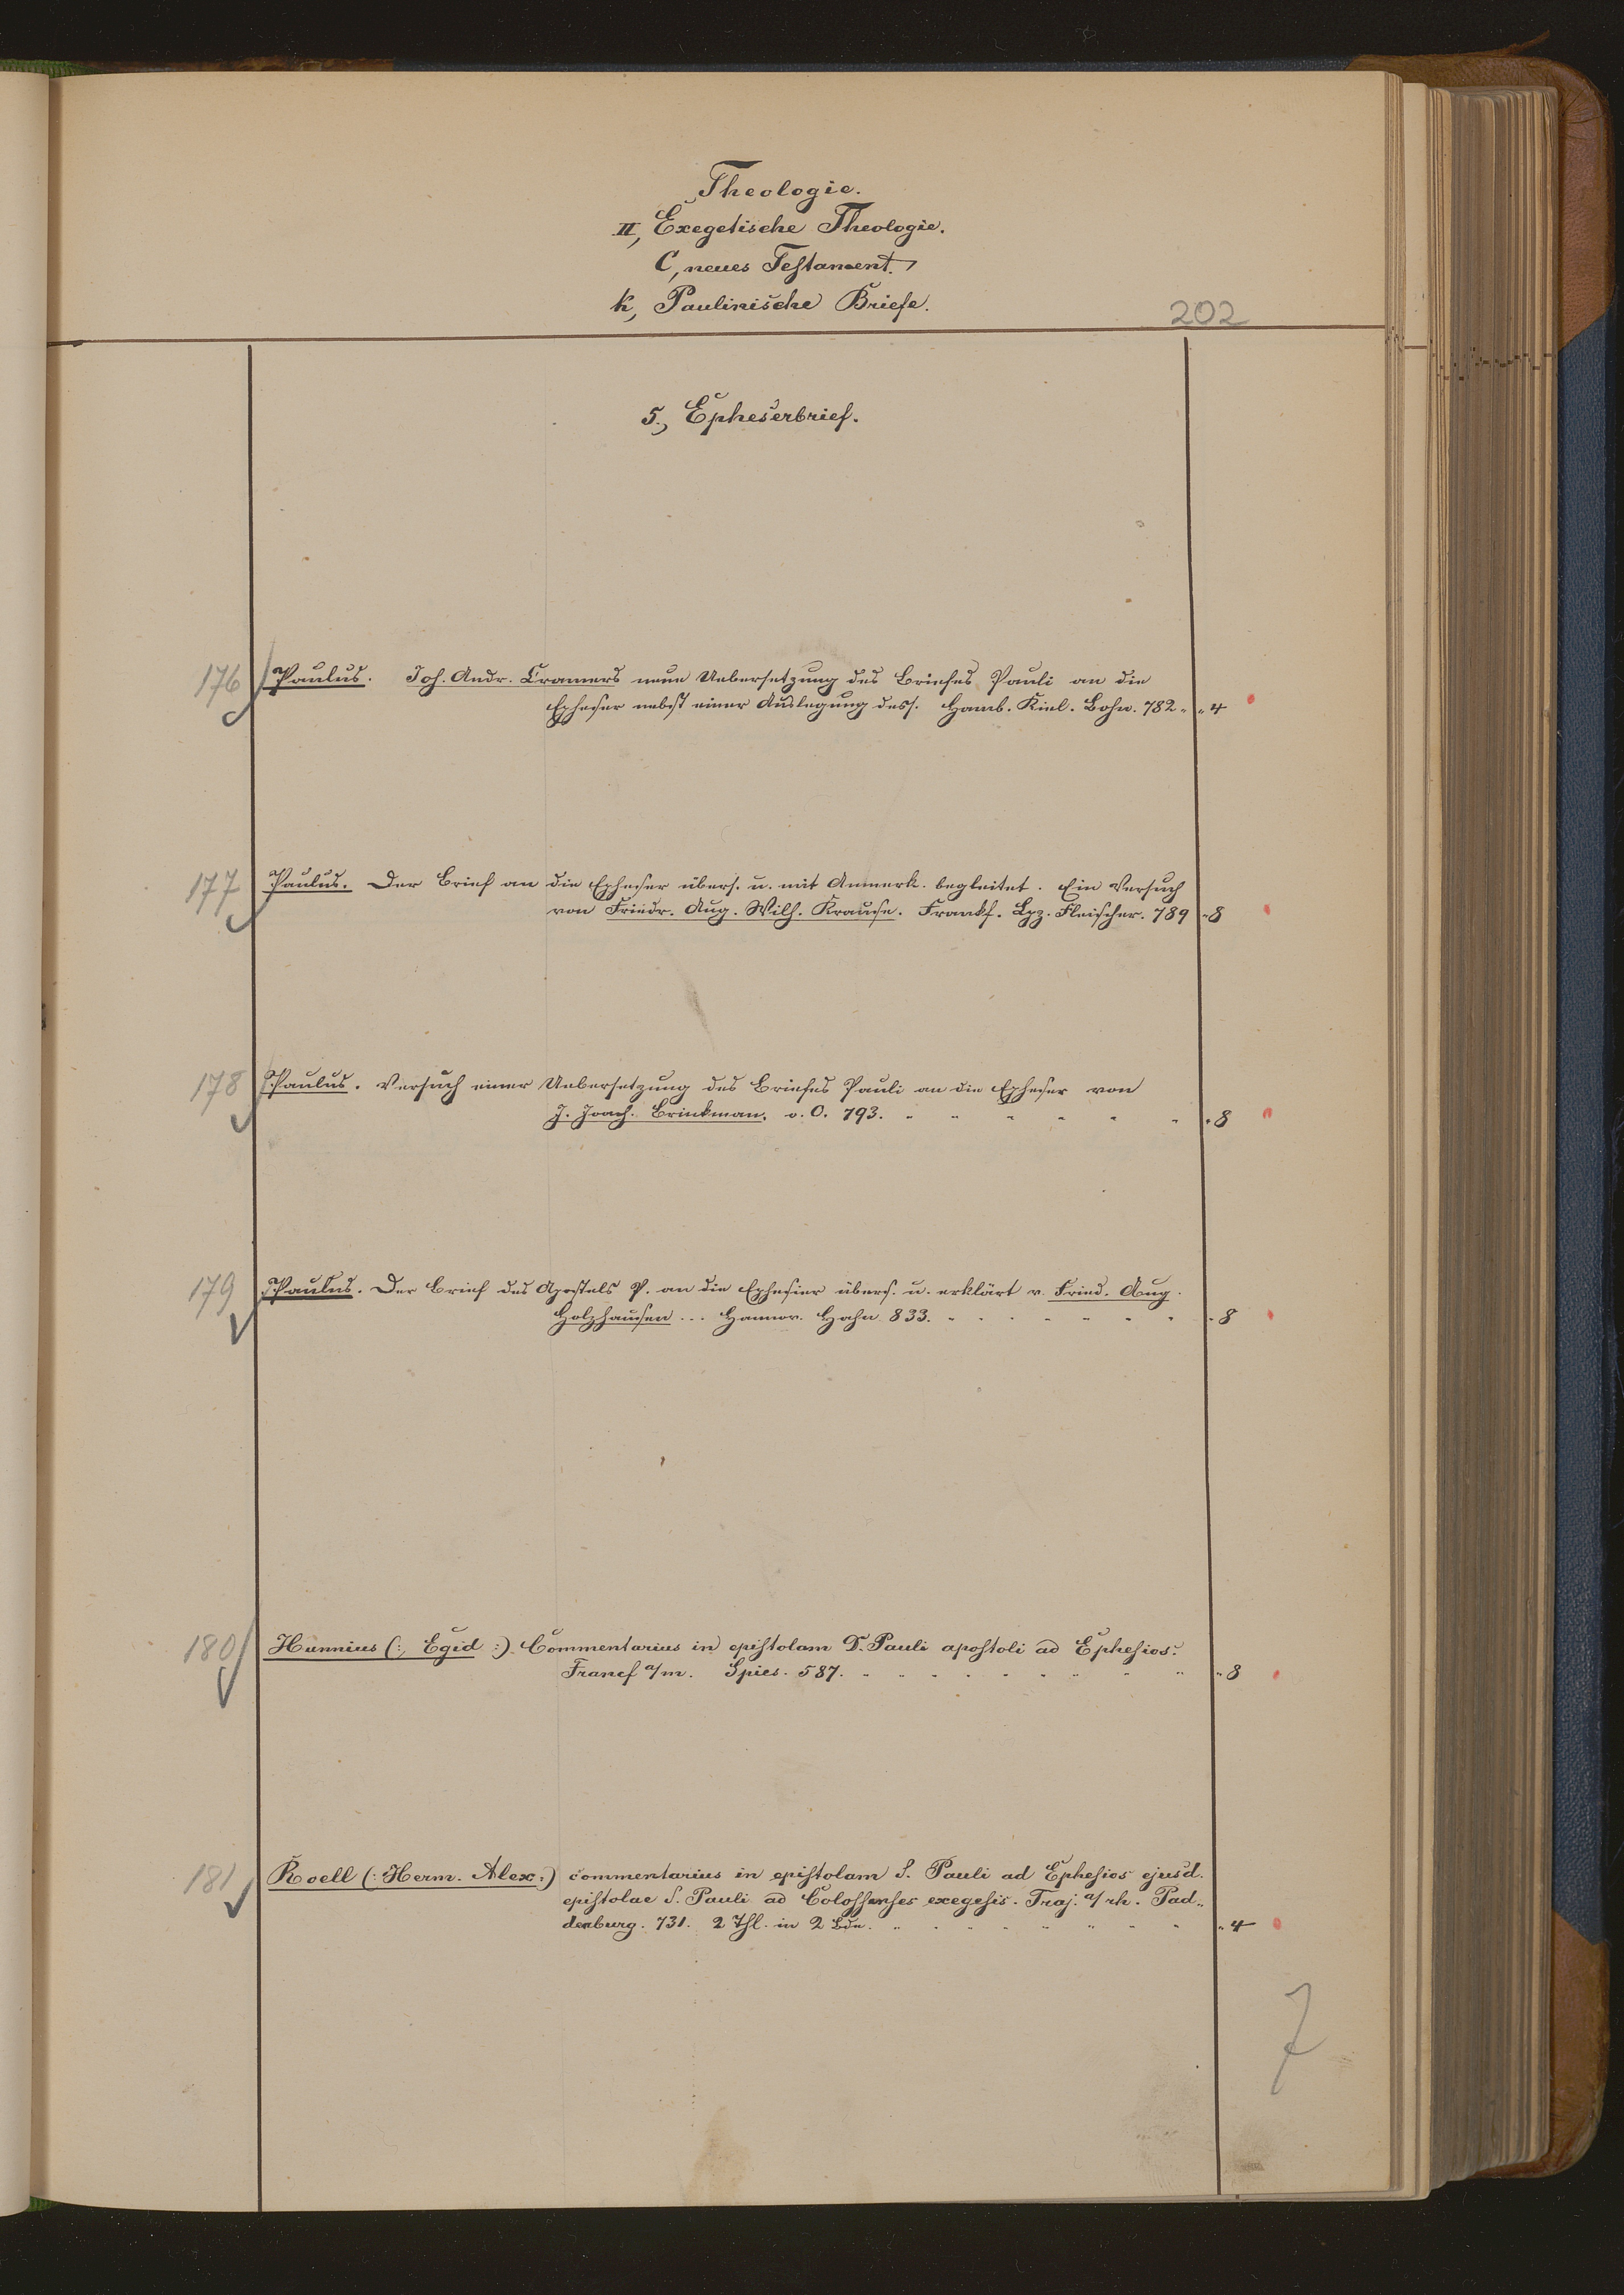 Theologie.
II, Exegetische Theologie.
C, neues Testament.
k, Paulinische Briefe.
202
5., Epheserbrief.
176 Paulus. Joh. Andr. Cramers neue Uebersetzung des Briefes Pauli an die
Epheser nebst einer Auslegung dess. Hamb. Kiel. Bohn. 782 " " 4
177 Paulus. Der Brief an die Epheser übers. u. mit Anmerk. begleitet. Ein Versuch
von Friedr. Aug. Wilh. Krause. Frankf. Lpz. Fleischer. 789 " 8
178 Paulus. Versuch einer Uebersetzung des Briefes Pauli an die Epheser von
J. Joach. Brinkman. o. O. 793. " " " " " " " 8
179 Paulus. Der Brief des Apostels P. an die Ephesier übers. u. erklärt v. Fried. Aug.
Holzhausen ... Hannov. Hahn 833. " " " " " " " " 8
180 Hunnius (:, Egid :). Commentarius in epistolam D. Pauli apostoli ad Ephesios.
Francf a/m. Spies. 587. " " " " " " " " " " 8
181 Roell (: Herm. Alex :) commentarius in epistolam S. Pauli ad Ephesios ejusd.
epistolae S. Pauli ad Colossenses exegesis. Traj. a/rh. Pad-
denburg. 731. 2 Thl. in 2 Bdn. " " " " " " " " " 4
7